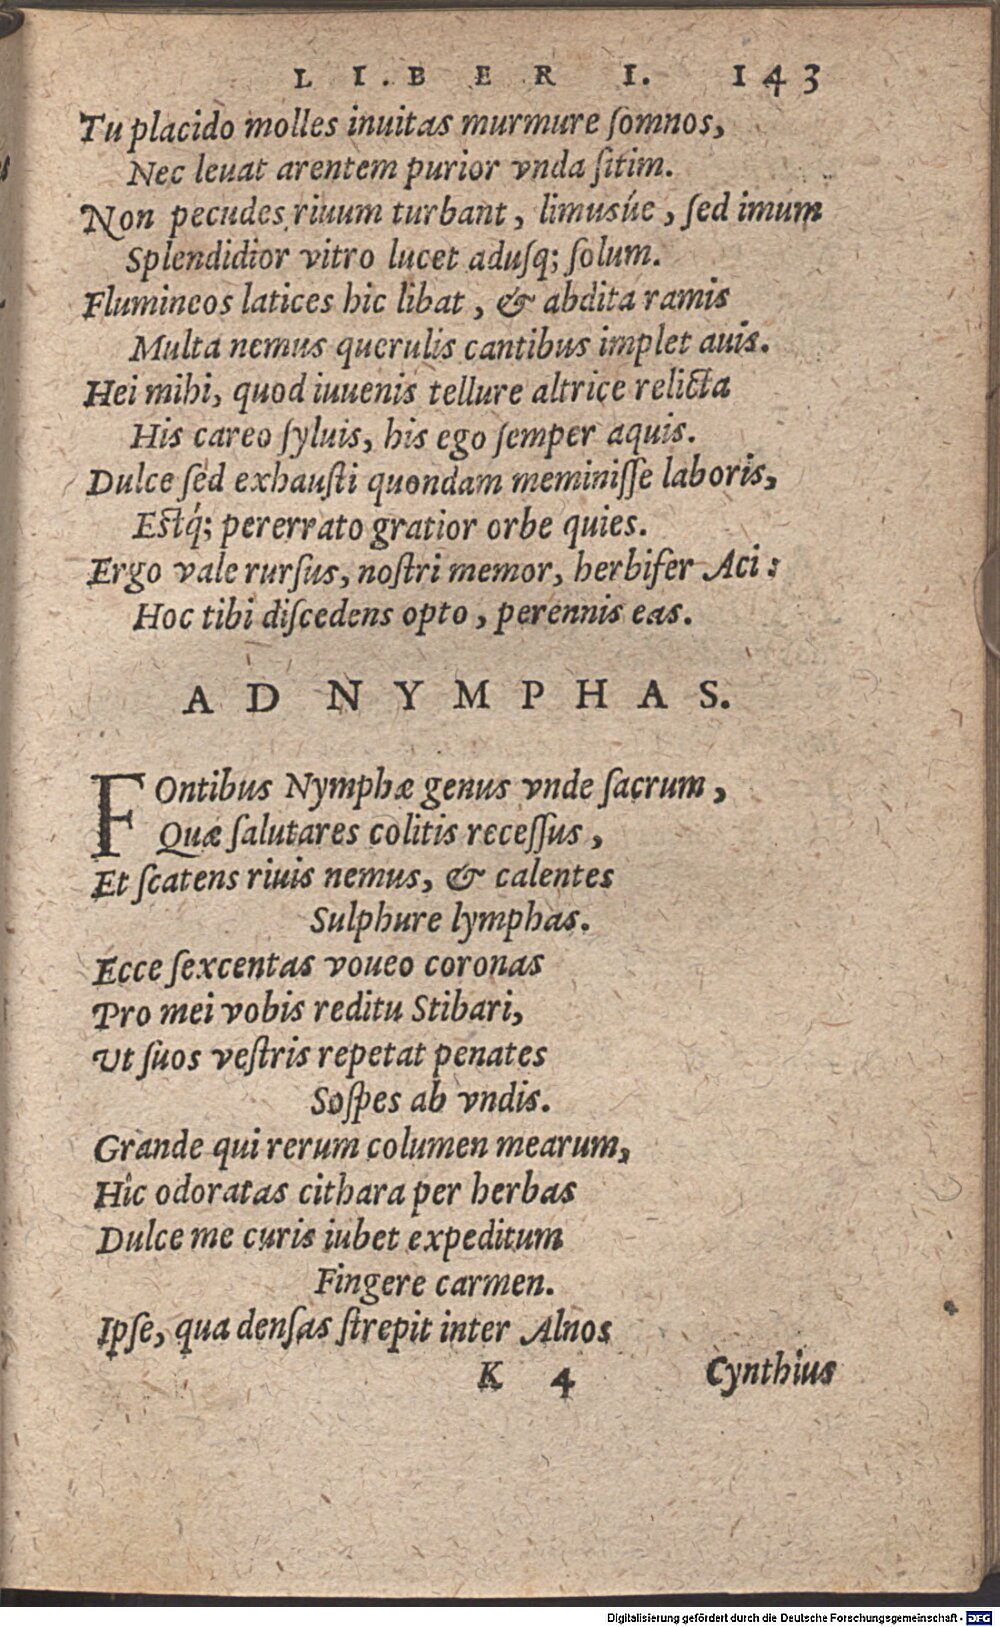 LI.BER I. 143
Tu placido molles inuitas murmure ſomnos,
Nec leuat arentem purior vnda ſitim.
Non pecudes riuum turbant, limusúe, ſed imum
Splendidior vitro lucet aduſq; ſolum.
Flumineos latices hic libat, & abdita ramis
Multa nemus querulis cantibus implet auis.
Hei mihi, quod iuuenis tellure altrice relicta
His careo ſyluis, his ego ſemper aquis.
Dulce ſed exhauſti quondam meminiſſe laboris,
Eſtq́; pererrato gratior orbe quies.
Ergo vale rurſus, noſtri memor, herbifer Aci:
Hoc tibi diſcedens opto, perennis eas.
AD NYMPHAS.
FOntibus Nymphæ genus vnde ſacrum,
Quæ ſalutares colitis receſſus,
Et ſcatens riuis nemus, & calentes
Sulphure lymphas.
Ecce ſexcentas voueo coronas
Pro mei vobis reditu Stibari,
Vt ſuos veſtris repetat penates
Soſpes ab vndis.
Grande qui rerum columen mearum,
Hîc odoratas cithara per herbas
Dulce me curis iubet expeditum
Fingere carmen.
Ipſe, qua denſas ſtrepit inter Alnos
K 4 Cynthius
Digitalisierung gefördert durch die Deutsche Forschungsgemeinschaft - DFG